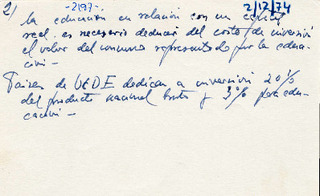 2/ -2197.- 2/12/74
La educación en relación con un capital
real. es necesario deducir del costo de inversión
el valor del consumo representado por la educa-
ción -
Países de OCDE dedican a inversión 20%
del producto nacional bruto y 3% para edu-
cación -